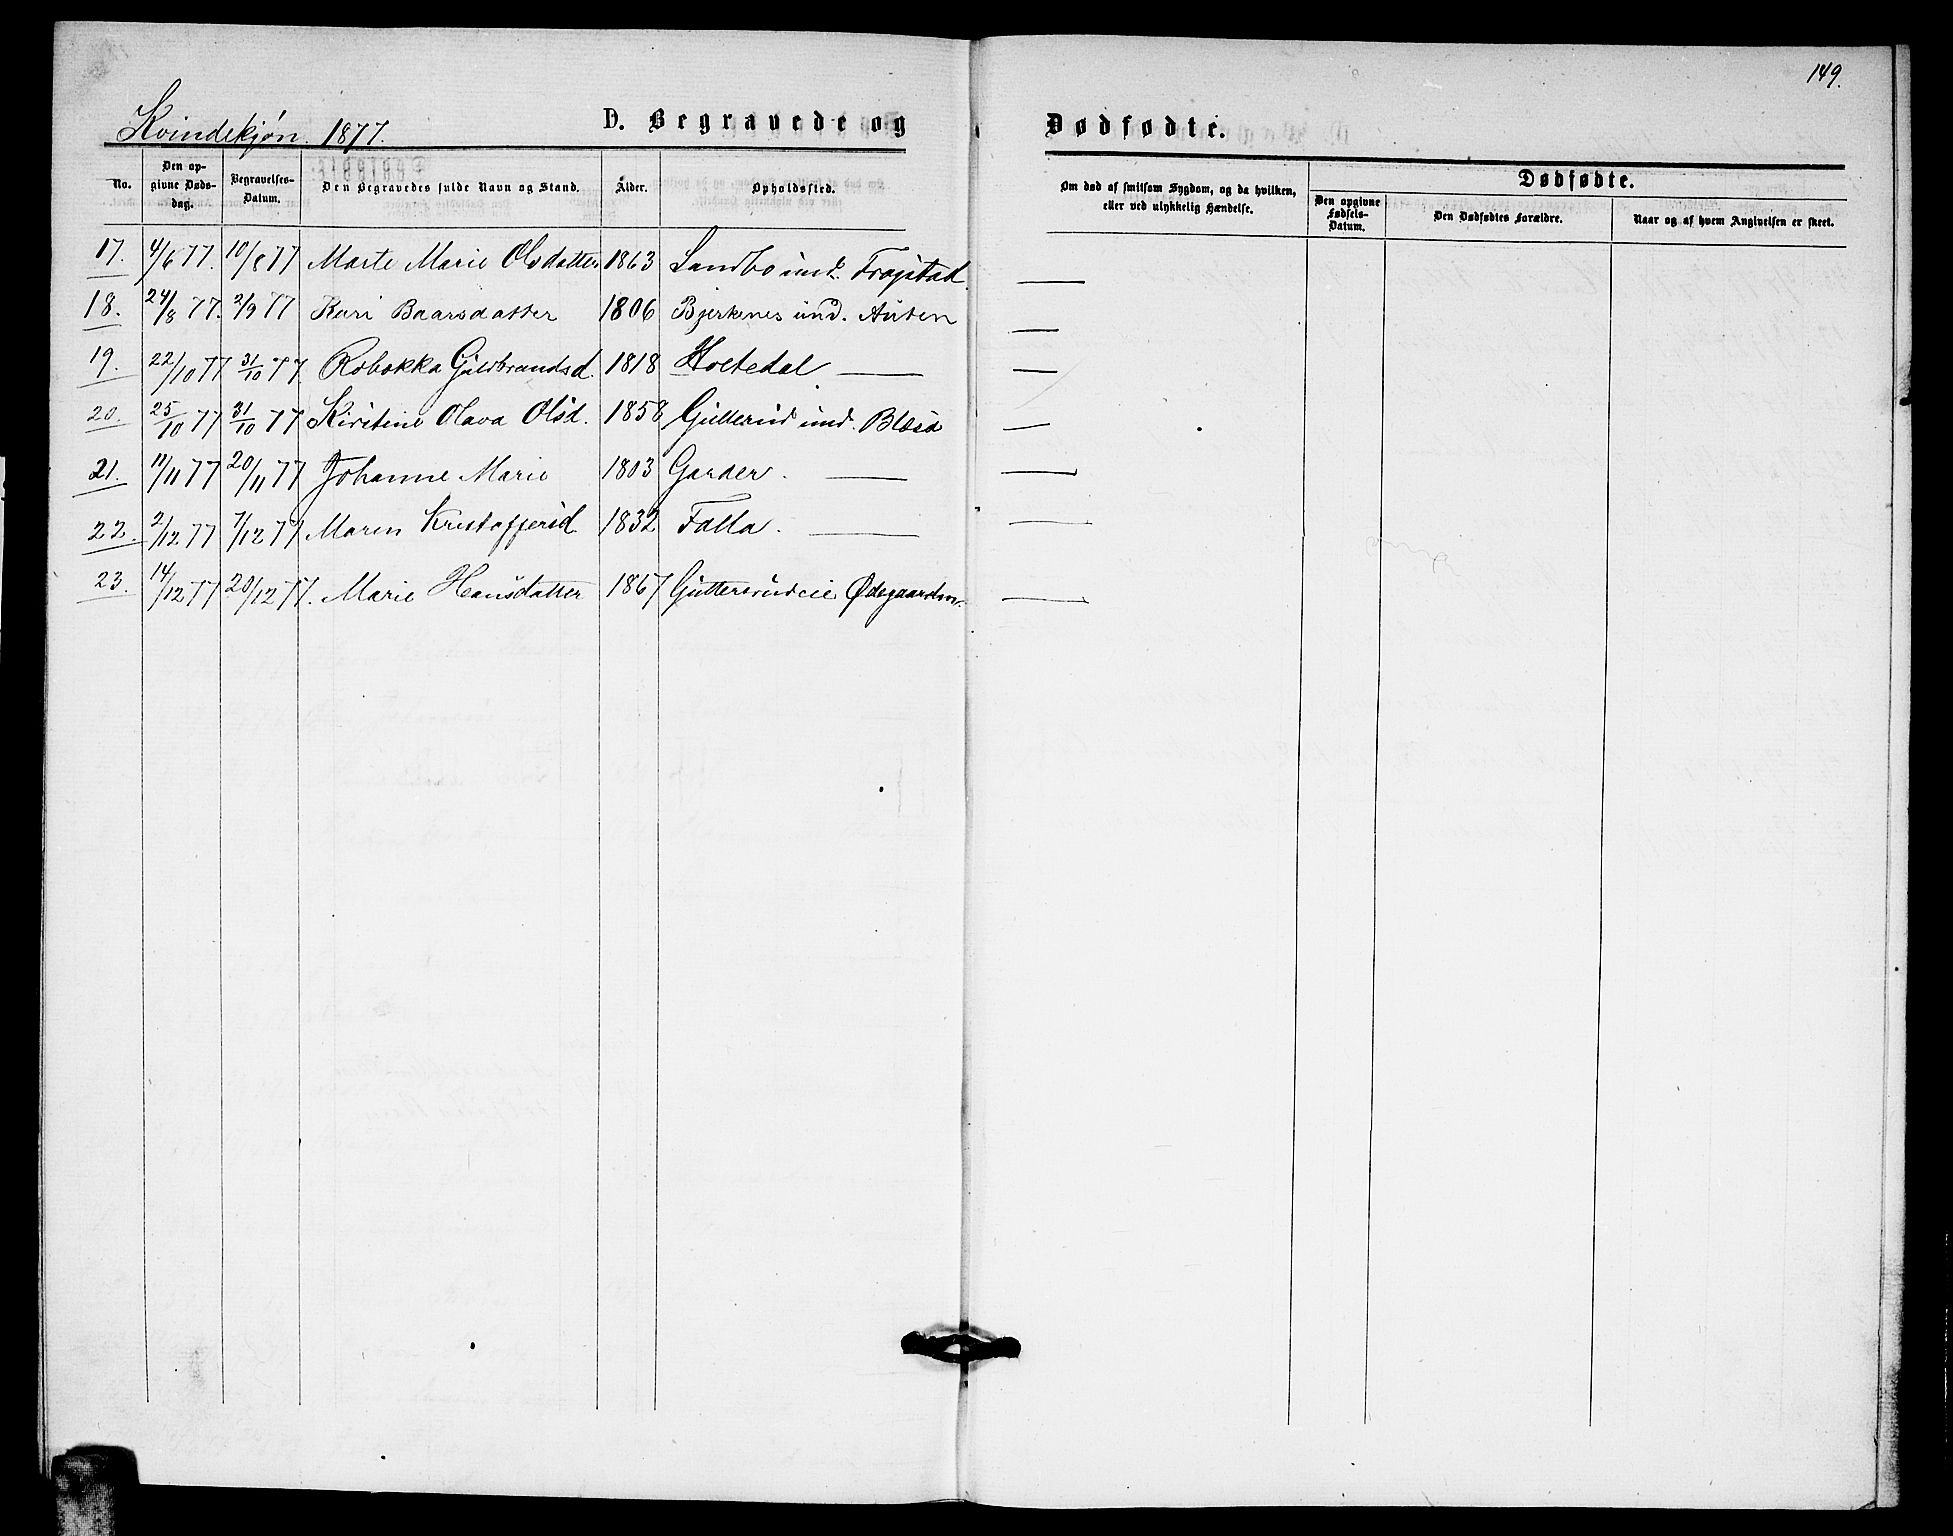 149.
Kvindekjøn. 1877. D. Begravede og Dødfødte.
No. Den opgivne Dødsdag. Begravelses-Datum. Den Begravedes fulde Navn og Stand. Alder. Opholdssted. Om død af smitsom Sygdom, og da hvilken, eller ved ulykkelig Hændelse. Dødfødte. Den opgivne Fødsels-Datum. Den Dødfødtes Forældre. Naar og af hvem Angivelsen er skeet.
17. 4/6 77. 10/8 77 Marte Marie Olsdatter 1863 Sandbo ind. Frogstad —
18. 24/8 77. 2/9 77 Kari Baarsdatter 1806 Bjerkenes ind. Aursen —
19. 22/10 77 31/10 77 Rebokka Gulbrandsd. 1818 Holtedal — —
20. 25/10 77 31/10 77 Kirstine Olava Olsd. 1858 Gullerud ind. —
21. 11/11 77 20/11 77 Johanne Marie 1803 Garder. — —
22. 2/12 77 7/12 77 Maren Kristoffersd 1832 Falla. — —
23. 14/12 77 20/12 77. Marie Hansdatter 1867 Guttersrudeie Ødegaarden. —